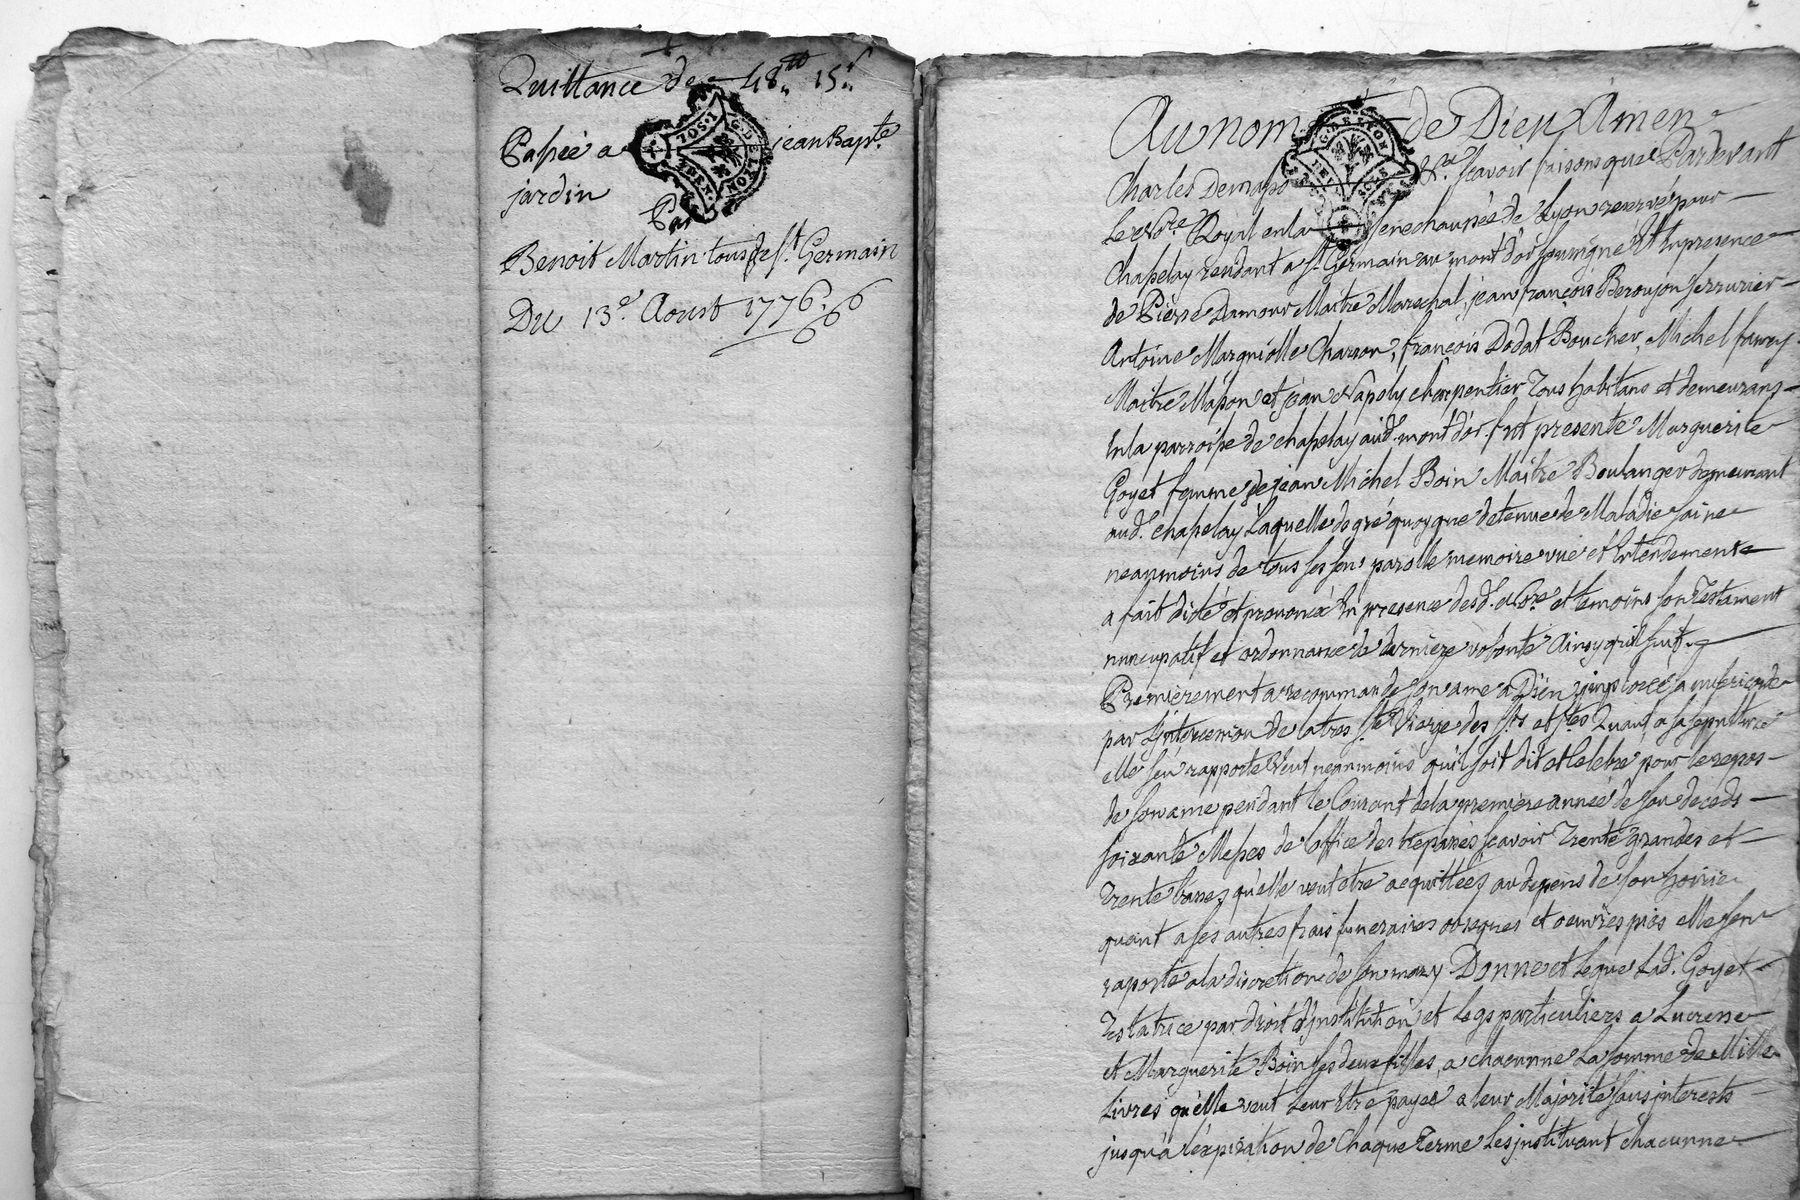 Quittance de 48.tt 15.s
Passée a jean Bapte.
jardin
Par
Benoit Martin tous de St. Germain
Du 13e. Aoust 1776.
Au nom de Dieu Amen
Charles Demaso &c. scavoir faisons que Pardevant
le Nore. Royal en la senechaussée de Lyon reservé pour
Chapelay rendant a St. Germain au mont d'or soussigné et In presence
de Pierre Damour Maitre Marechal, jean françois Beroujon serrurier
Antoine Margniolle Charron, françois Dodat Boucher, Michel
Maitre Masson et jean Napoly charpentier Tous habitans et demeurans
En la parroisse de chapelay aud. mont d'or. fut presente Marguerite
Goyet femme de jean Michel Boin Maitre Boulanger demeurant
aud. chapelay Laquelle de gré quoyque detenue de Maladie saine
neanmoins de tous ses sens parolle memoire vue et Entendement
a fait dicté et prononcé En presence desd. Nore. et temoins son Testament
nuncupatif et ordonnance de derniere volonté Ainsy quil suit.
Premierement a recommandé son ame a Dieu, imploré sa misericorde
par L'intercession de la tres ste. Vierge des sts et stes Quant a sa sepulture
elle s'en rapporte Veut neanmoins qu'il soit dit et Celebré pour le repos
de son ame pendant le Courant de la premiere année de son deceds
soixante Messes de l'office des trepassés scavoir Trente grandes et
Trente basses qu'elle veut etre acquittées au depens de son hoirie
quant a ses autres frais funeraires obseques et oeuvres pies elle s'en
raporte a la discretion de son mary Donne et legue Lad. Goyet
Testatrice par droit d'institution et legs particuliers a Lucresse
et Marguerite Boin ses deux filles, a chacunne La somme de Mille
Livres qu'elle veut Leur Etre payée a leur Majorité sans jnterests
jusqu'a l'expiration de Chaque Terme Les jnstituant chacunne